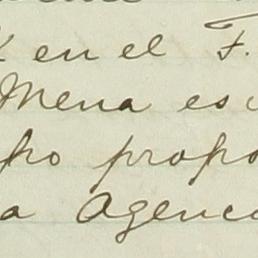 en el F.
Mena es
po propo
a Agenc